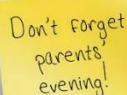 Don't forget
parents'
evening!